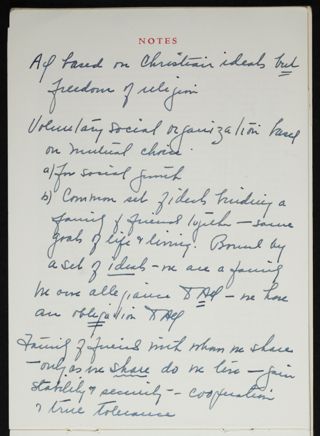 NOTES
A φ based on Christian ideals but
freedom of religion
Voluntary social organization based
on mutual choice.
a) for social growth
b) Common set of ideals binding a
family of friends together – same
goals of life & living. Bound by
a set of ideals – we are a family
we owe allegiance to A φ – we have
an obligation to A φ
Family of friends with whom we share
– only as we share do we live – gain
stability & security – cooperation
& true tolerance